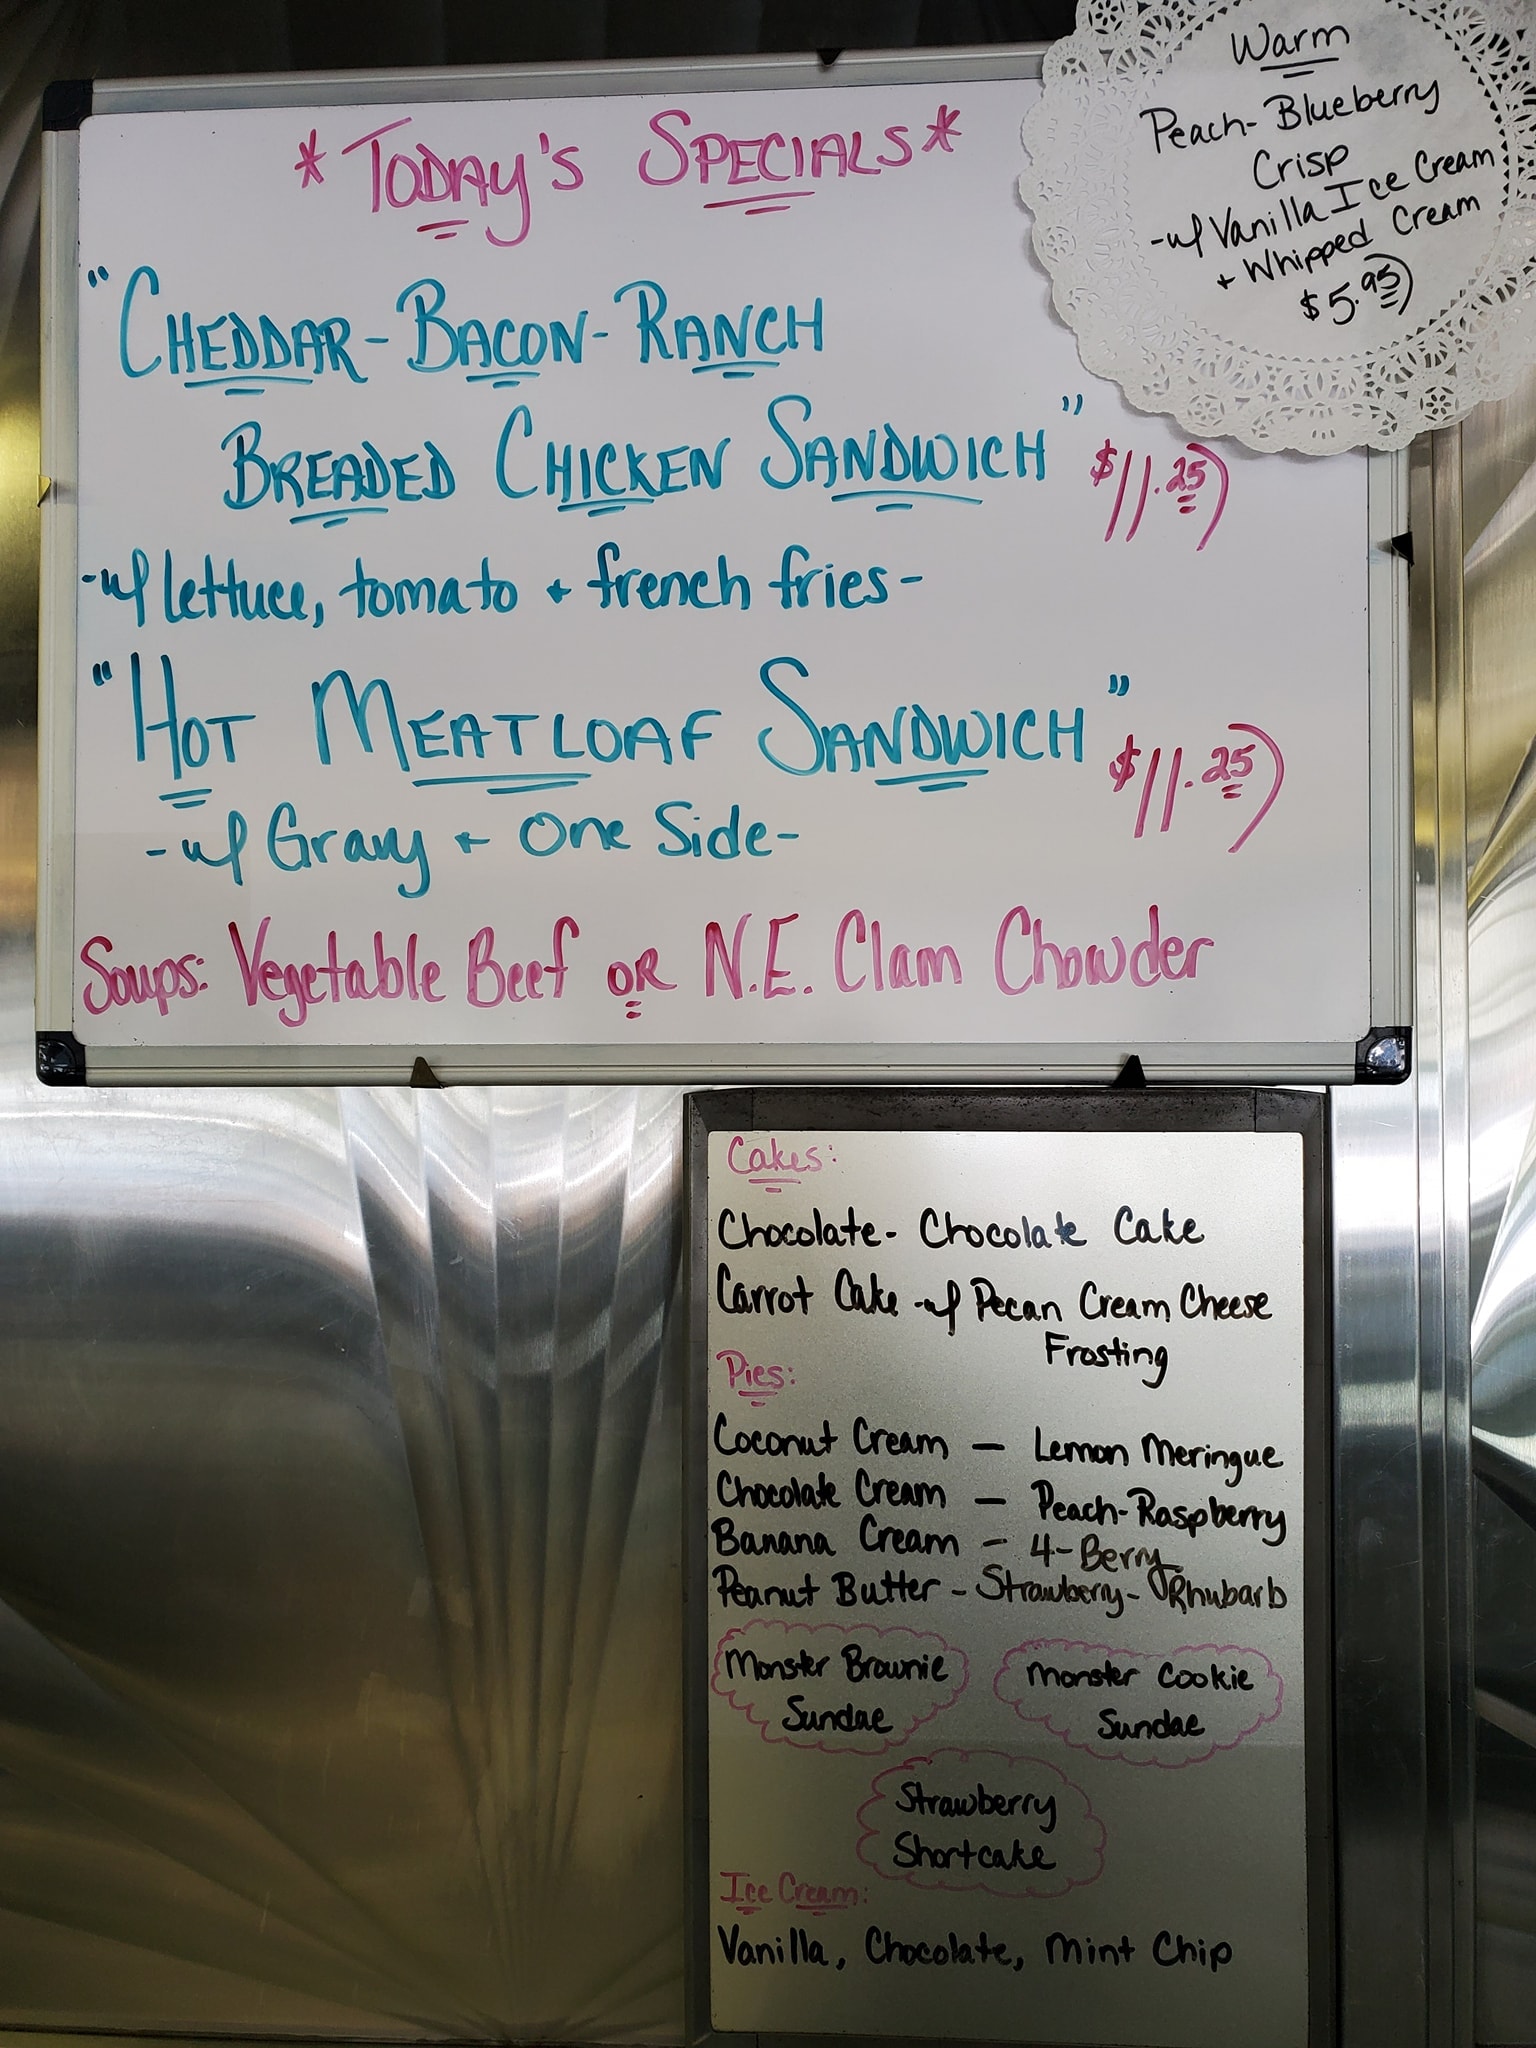 *Today's Specials*
"Cheddar-Bacon-Ranch
Breaded Chicken Sandwich" $11.25)
-w/ lettuce, tomato + french fries-
"Hot Meatloaf Sandwich" $11.25)
-w/ Gravy + One Side-
Soups: Vegetable Beef OR N.E. Clam Chowder
Warm
Peach-Blueberry
Crisp
-w/ Vanilla Ice Cream
+ Whipped Cream
$5.95)
Cakes:
Chocolate-Chocolate Cake
Carrot Cake -w/ Pecan Cream Cheese
Frosting
Pies:
Coconut Cream — Lemon Meringue
Chocolate Cream — Peach-Raspberry
Banana Cream - 4-Berry
Peanut Butter - Strawberry-Rhubarb
Monster Brownie
Sundae
Monster Cookie
Sundae
Strawberry
Shortcake
Ice Cream:
Vanilla, Chocolate, Mint Chip